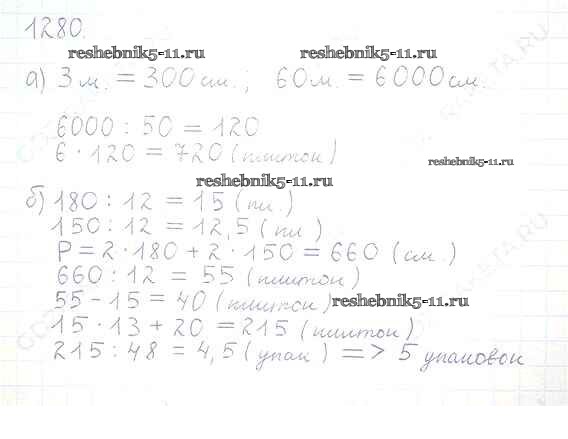 1280.
reshebnik5-11.ru reshebnik5-11.ru
а) 3 м. = 300 см. ; 60 м. = 6000 см.
6000 : 50 = 120
6 · 120 = 720 (плиток)
reshebnik5-11.ru
reshebnik5-11.ru
б) 180 : 12 = 15 (пл.)
150 : 12 = 12,5 (пл)
P = 2 · 180 + 2 · 150 = 660 (см.)
660 : 12 = 55 (плиток)
55 - 15 = 40 (плиток)
reshebnik5-11.ru
15 · 13 + 20 = 215 (плиток)
215 : 48 = 4,5 (упак) => 5 упаковок